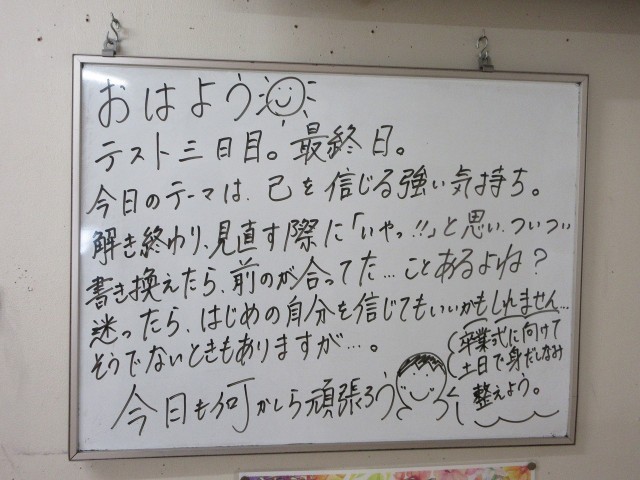 おはよう
テスト三日目。最終日。
今日のテーマは、己を信じる強い気持ち。
解き終わり、見直す際に「いやっ!!」と思い、ついつい
書き換えたら、前のが合ってた…ことあるよね?
迷ったら、はじめの自分を信じてもいいかもしれません…
そうでないときもありますが…。
今日も何かしら頑張ろう
卒業式に向けて
土日で身だしなみ
整えよう。